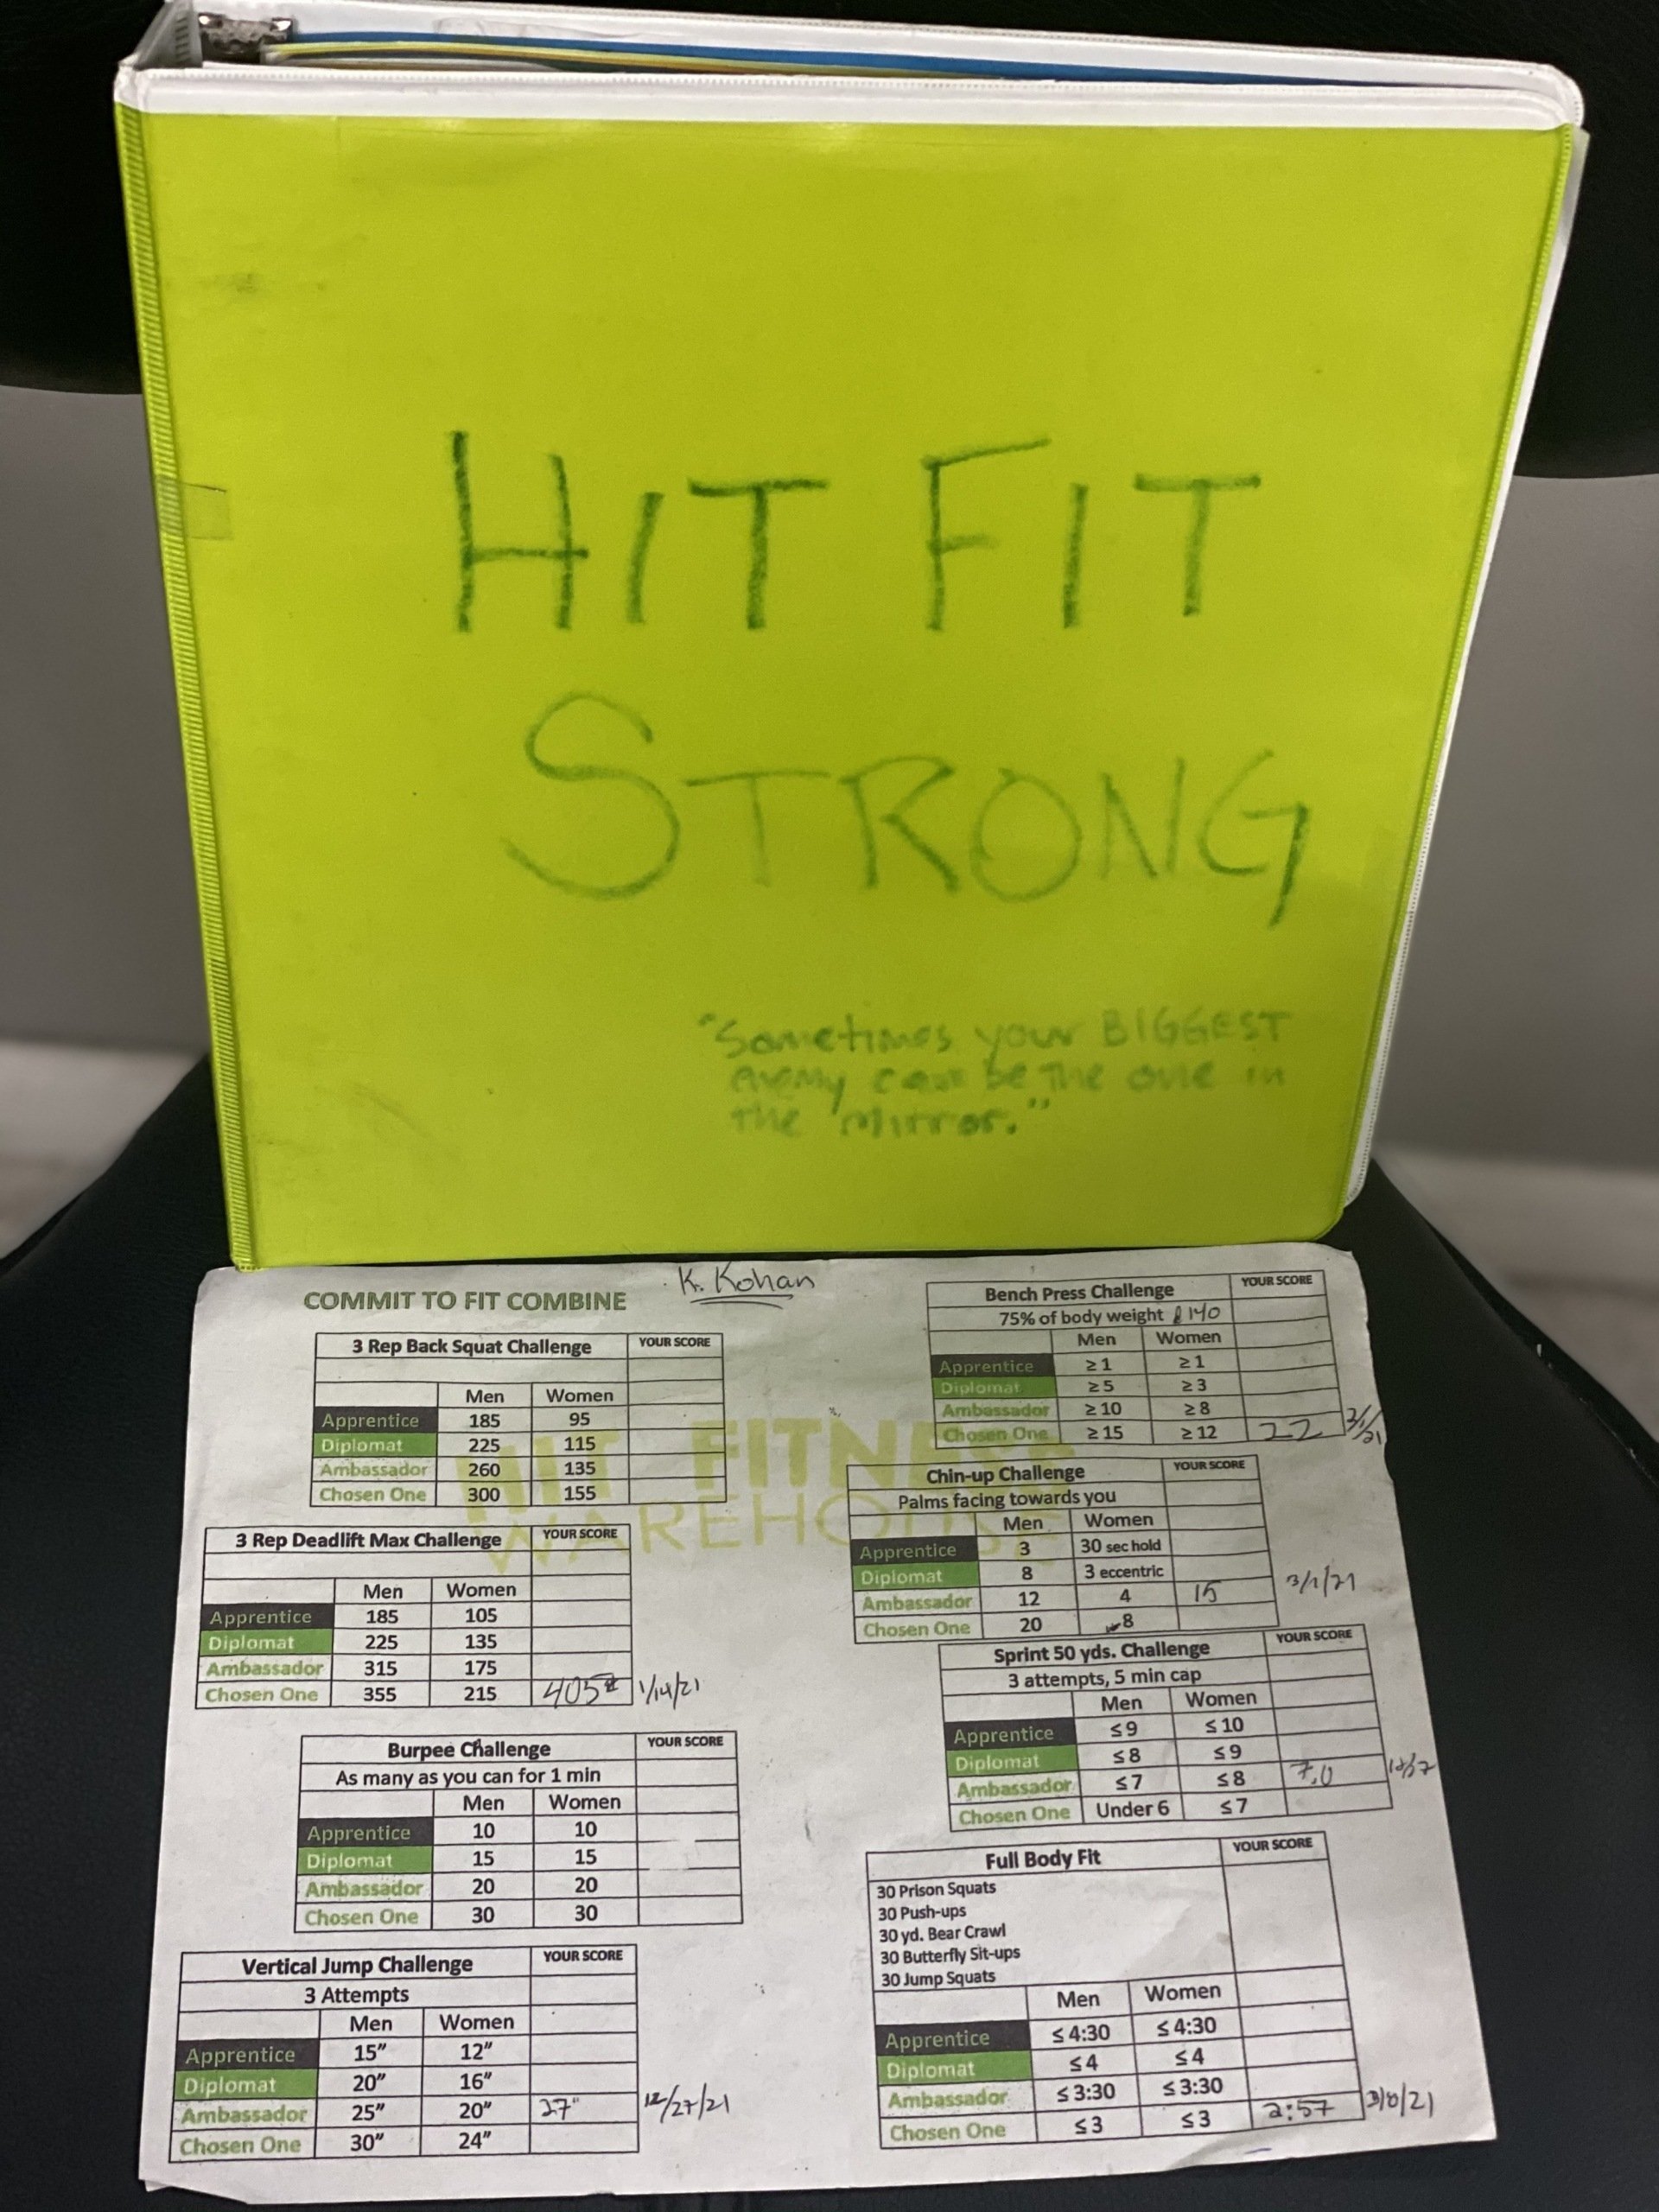 HIT FIT
STRONG
"Sometimes your BIGGEST
enemy can be the one in
the mirror."
COMMIT TO FIT COMBINE
K. Kohan
HIT FITNESS
WAREHOUSE
3 Rep Back Squat Challenge YOUR SCORE
Men Women
Apprentice 185 95
Diplomat 225 115
Ambassador 260 135
Chosen One 300 155
3 Rep Deadlift Max Challenge YOUR SCORE
Men Women
Apprentice 185 105
Diplomat 225 135
Ambassador 315 175
Chosen One 355 215 405# 1/14/21
Burpee Challenge YOUR SCORE
As many as you can for 1 min
Men Women
Apprentice 10 10
Diplomat 15 15
Ambassador 20 20
Chosen One 30 30
Vertical Jump Challenge YOUR SCORE
3 Attempts
Men Women
Apprentice 15" 12"
Diplomat 20" 16"
Ambassador 25" 20" 27" 12/27/21
Chosen One 30" 24"
Bench Press Challenge YOUR SCORE
75% of body weight 140
Men Women
Apprentice ≥1 ≥1
Diplomat ≥5 ≥3
Ambassador ≥10 ≥8
Chosen One ≥15 ≥12 22 3/1/21
Chin-up Challenge YOUR SCORE
Palms facing towards you
Men Women
Apprentice 3 30 sec hold
Diplomat 8 3 eccentric
Ambassador 12 4 15 3/1/21
Chosen One 20 8
Sprint 50 yds. Challenge YOUR SCORE
3 attempts, 5 min cap
Men Women
Apprentice ≤9 ≤10
Diplomat ≤8 ≤9
Ambassador ≤7 ≤8 7.0
Chosen One Under 6 ≤7
Full Body Fit YOUR SCORE
30 Prison Squats
30 Push-ups
30 yd. Bear Crawl
30 Butterfly Sit-ups
30 Jump Squats
Men Women
Apprentice ≤4:30 ≤4:30
Diplomat ≤4 ≤4
Ambassador ≤3:30 ≤3:30
Chosen One ≤3 ≤3 2:57